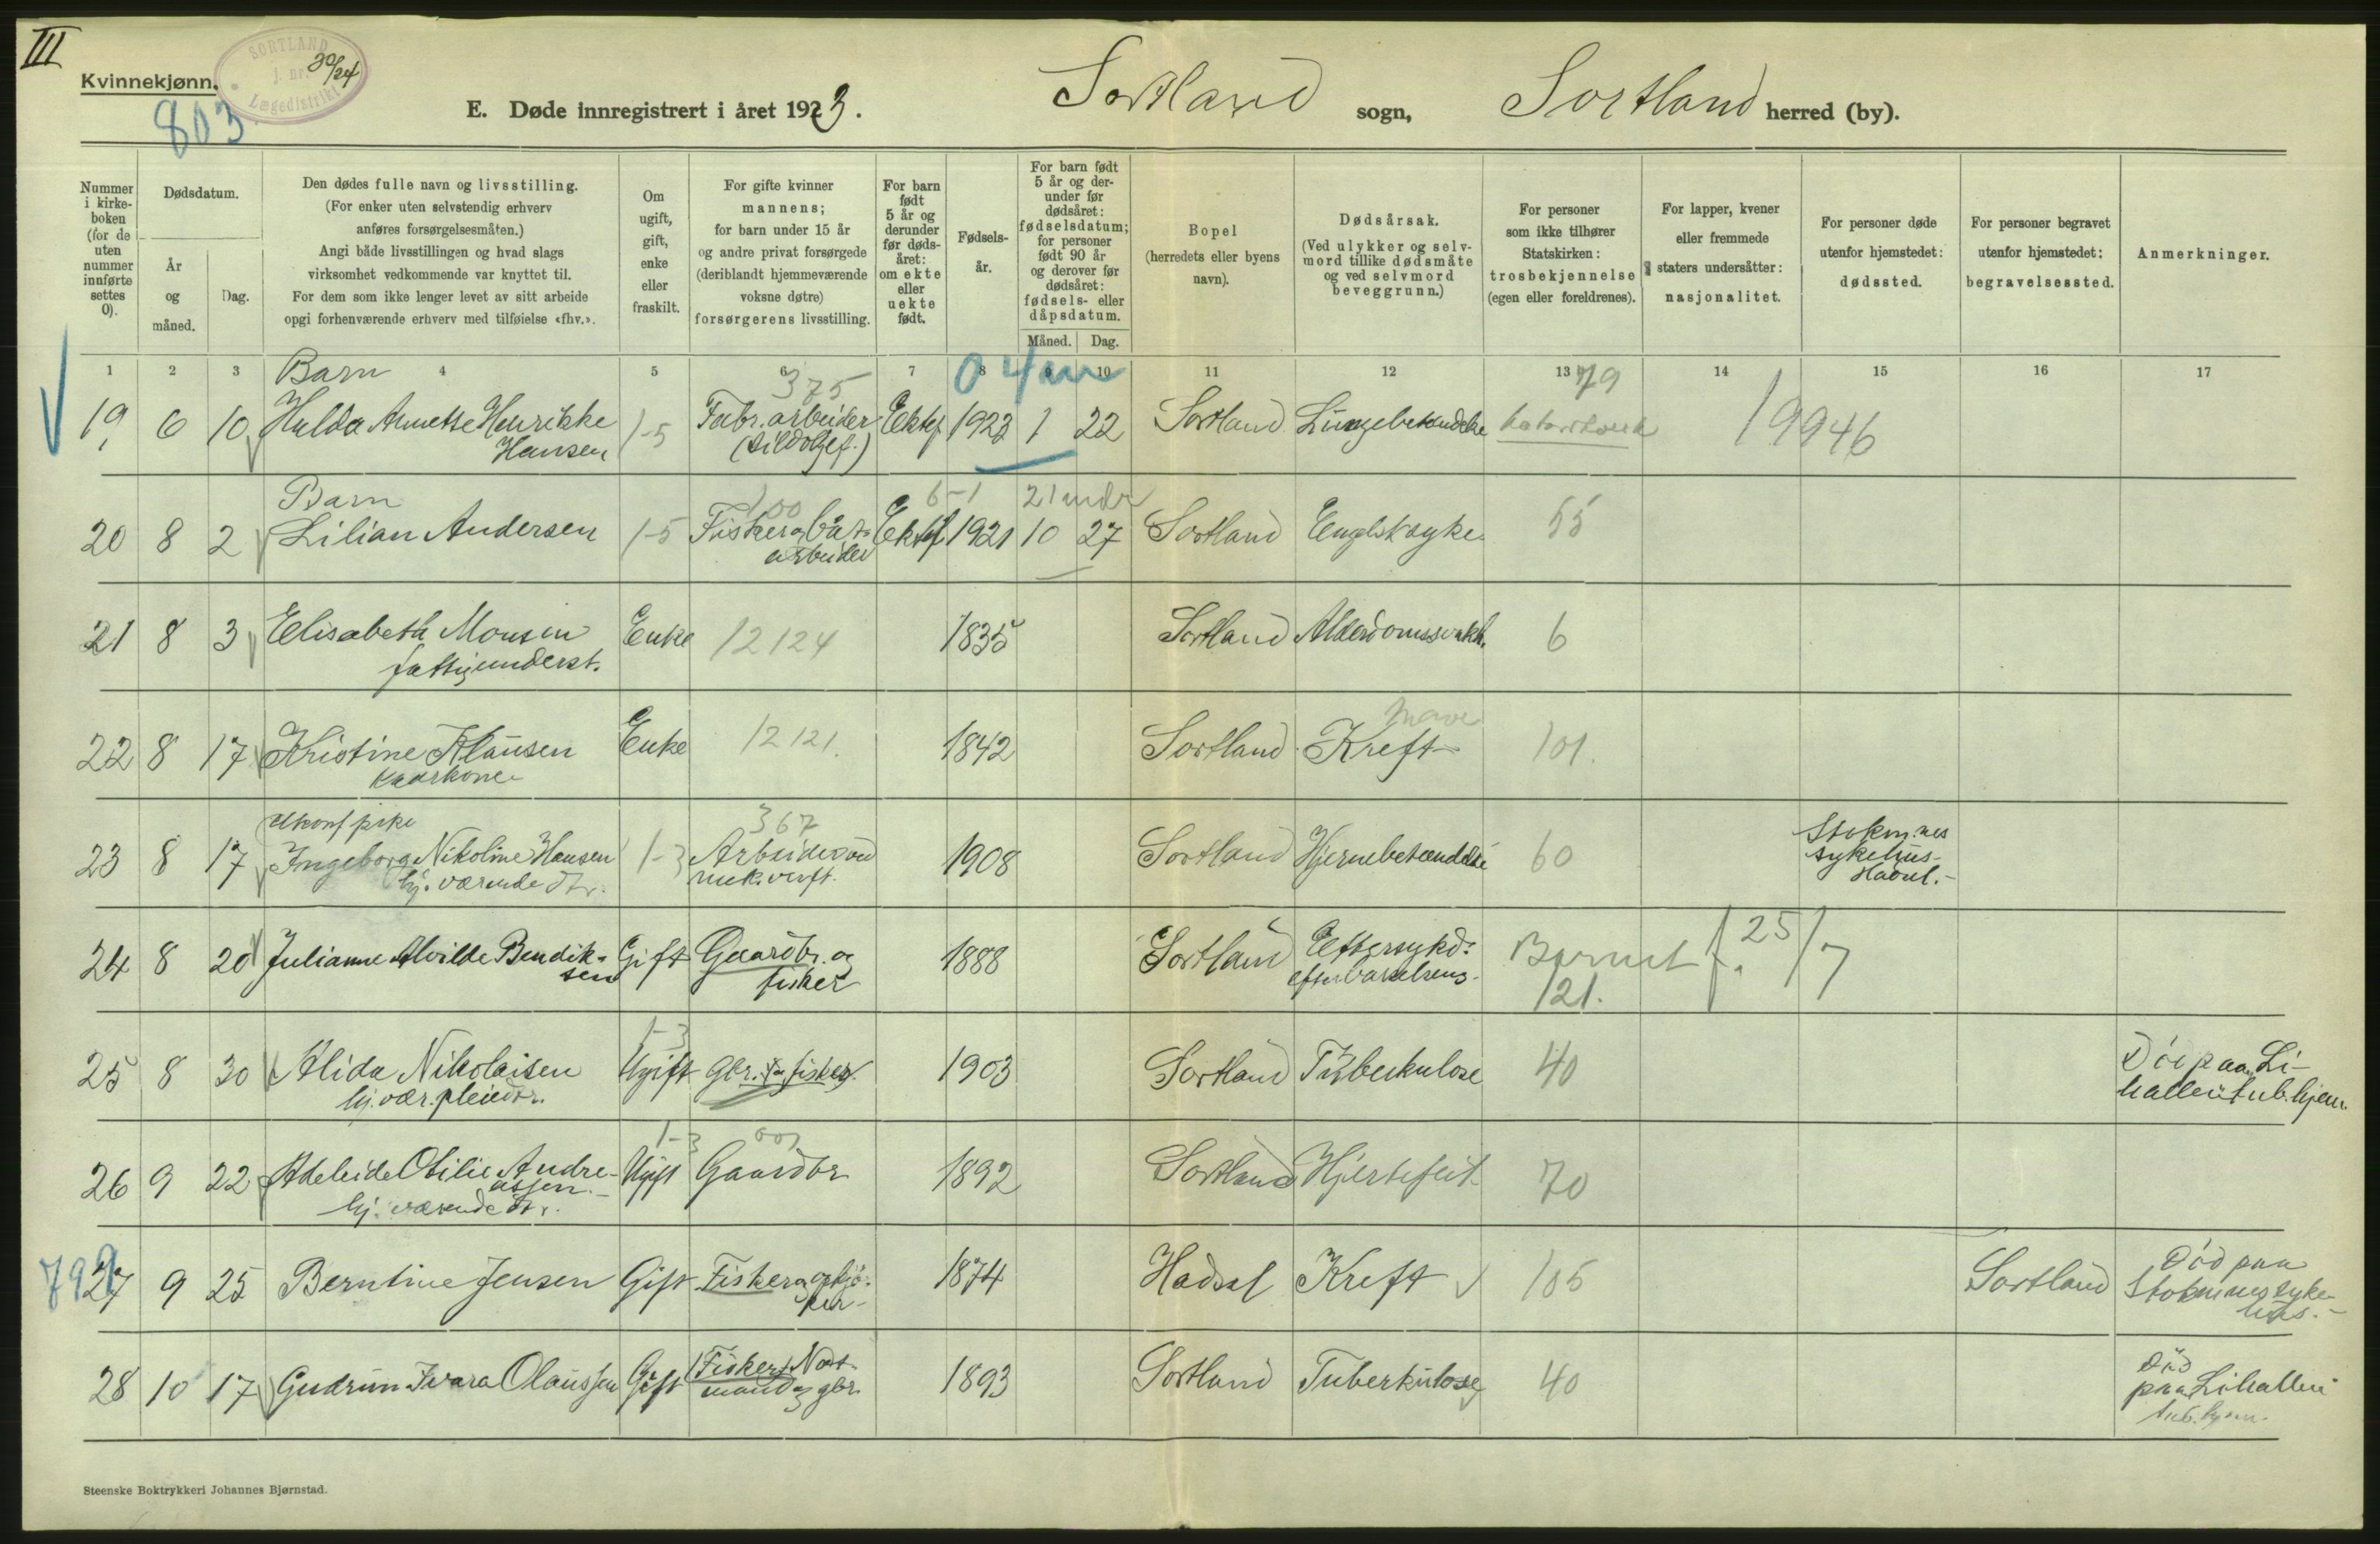 III
Kvinnekjønn.
SORTLAND
j. nr. 30/24
Lægedistrikt
803
E. Døde innregistrert i året 1923.
Sortland sogn, Sortland herred (by).
Nummer i kirke-boken (for de uten nummer innførte settes 0).
Dødsdatum.
År og måned.
Dag.
Den dødes fulle navn og livsstilling.
(For enker uten selvstendig erhverv
anføres forsørgelsesmåten.)
Angi både livsstillingen og hvad slags
virksomhet vedkommende var knyttet til.
For dem som ikke lenger levet av sitt arbeide
opgi forhenværende erhverv med tilføielse «fhv.».
Om ugift, gift, enke eller fraskilt.
For gifte kvinner
mannens;
for barn under 15 år
og andre privat forsørgede
(deriblandt hjemmeværende
voksne døtre)
forsørgerens livsstilling.
For barn født 5 år og derunder før døds-året: om ekte eller uekte født.
Fødsels-år.
For barn født 5 år og der-under før dødsåret: fødselsdatum; for personer født 90 år og derover før dødsåret: fødsels- eller dåpsdatum.
Måned. Dag.
Bopel
(herredets eller byens
navn).
Dødsårsak.
(Ved ulykker og selv-
mord tillike dødsmåte
og ved selvmord
beveggrunn.)
For personer
som ikke tilhører
Statskirken:
trosbekjennelse
(egen eller foreldrenes).
For lapper, kvener
eller fremmede
staters undersåtter:
nasjonalitet.
For personer døde
utenfor hjemstedet:
dødssted.
For personer begravet
utenfor hjemstedet:
begravelsessted.
Anmerkninger.
1 2 3 4 5 6 7 8 9 10 11 12 13 14 15 16 17
Barn 375 0 4 79
19 6 10 Hulda Annette Henrikke 1-5 Fabr. arbeider Ektef. 1923 1 22 Sortland Lungebetændelse 19946
Hansen (sildoljef.)
Barn 100 6-1 21 mdr
20 8 2 Lilian Andersen 1-5 Fisker og bat- Ektef 1921 10 27 Sortland Engelsk syke 55
arbeider
21 8 3 Elisabeth Monsen Enke 12124 1835 Sortland Alderdomssvakh. 6
fattigunderst.
mave
22 8 17 Kristine Klausen Enke 12121. 1842 Sortland Kreft 101.
Kaarkone
Ukonf pike 367
23 8 17 Ingeborg Nikoline Hansen 1-3 Arbeider ved 1908 Sortland Hjernebetændelse 60 Stokm.nes
hj. værende dtr. mek. verft. sykehus-
Hadsel.-
24 8 20 Julianne Alvilde Bendik- Gift Gaardbr. og 1888 Sortland Eftersykd. Barnet f. 25/7
sen fisker efter barselseng. 121.
1-3
25 8 30 Alida Nikolaisen Ugift gbr. og fisker 1903 Sortland Tuberkulose 40 Død paa Li-
hj. vær. pleiedtr. hallen tub.hjem.
1-3 001
26 9 22 Adeleide Otilie Andre- Ugift Gaardbr 1892 Sortland Hjertefeil 70
assen.
hj. værende dtr.
799
27 9 25 Berntine Jensen Gift Fisker og opkjø- 1874 Hadsel Kreft 105 Sortland Død paa
per- Stokmarnes syke-
hus.-
28 10 17 Gudrun Ivara Olaussen Gift Fisker, Not- 1893 Sortland Tuberkulose 40 Død
mand og gbr. paa Lihallen
tub. hjem.
Steenske Boktrykkeri Johannes Bjørnstad.